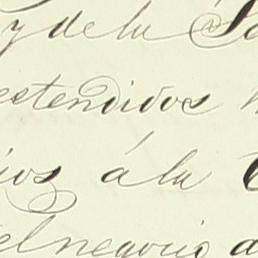 y de la
estendidos
ios á la
el negocio d